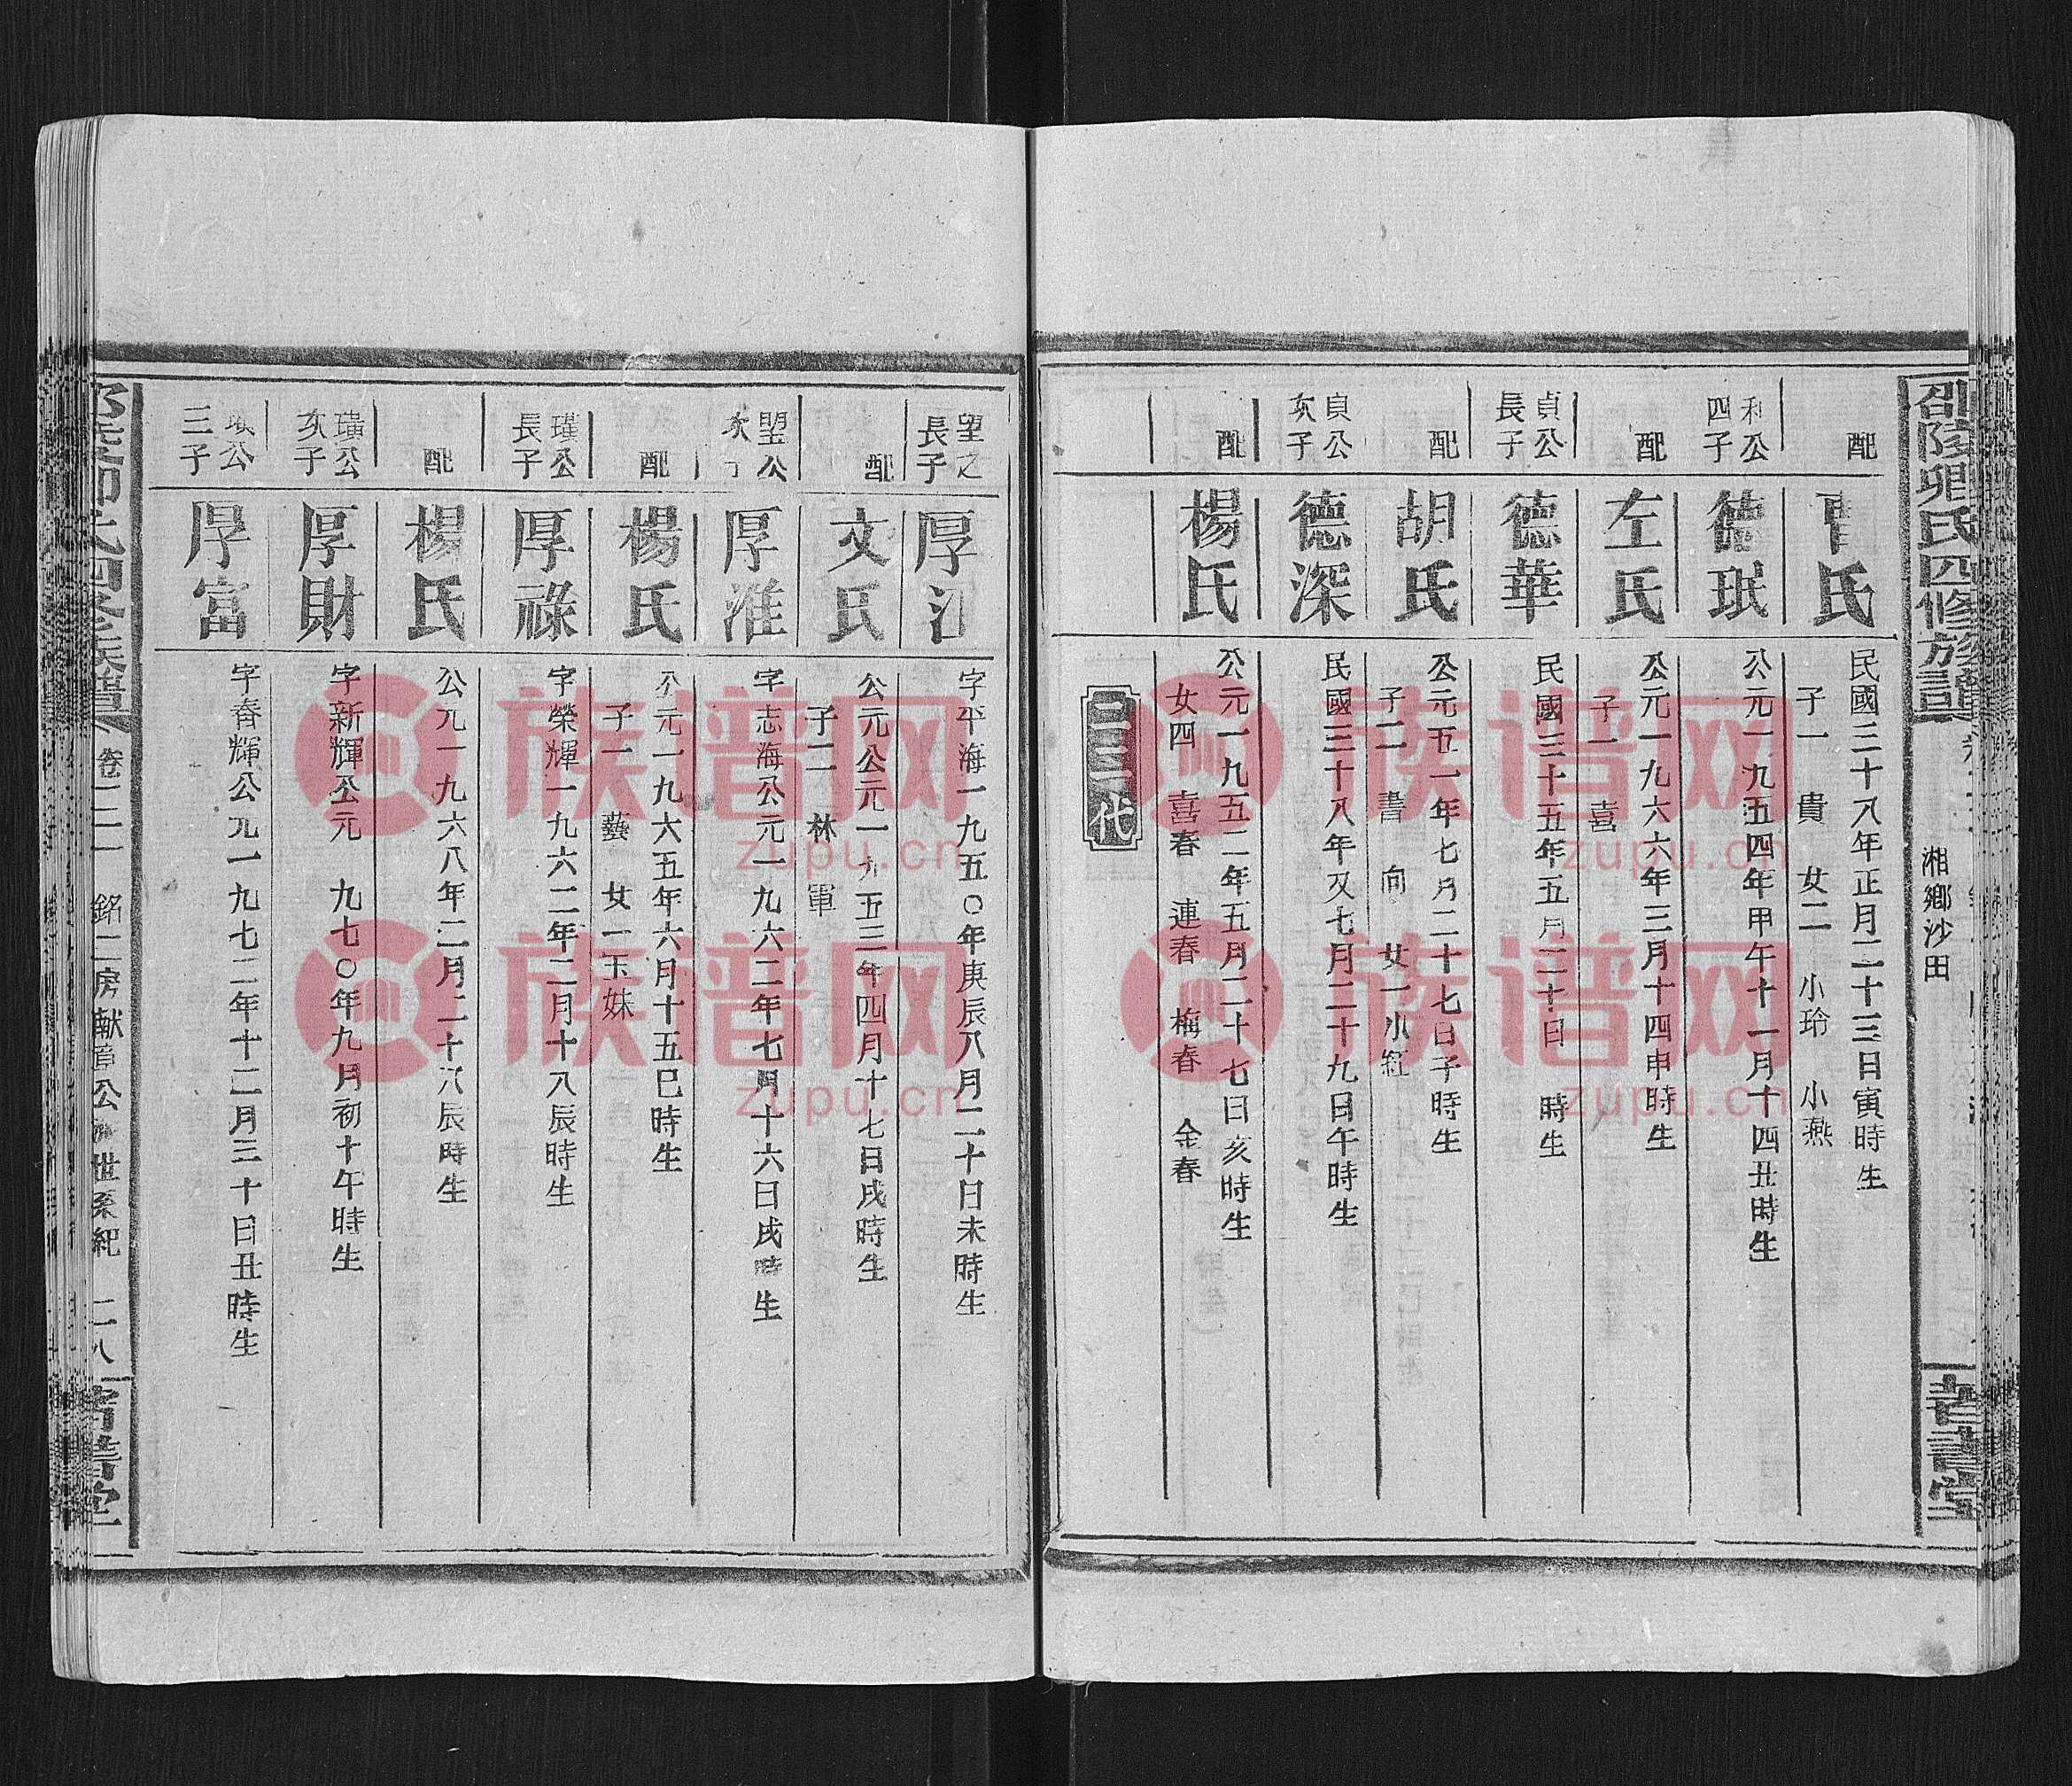 邵陵卿氏四修族譜
湘鄉沙田
配
曹氏
民國三十八年正月二十三日寅時生
子一 貴 女二 小玲 小燕
利公
四子
德珉
公元一九五四年甲午十一月十四丑時生
配
左氏
公元一九六六年三月十四申時生
子一 喜
貞公
長子
德華
民國三十五年五月二十日 時生
配
胡氏
公元五一年七月二十七日子時生
子二 書 向 女一小紅
貞公
次子
德深
民國三十八年又七月二十九日午時生
配
楊氏
公元一九五二年五月二十七日亥時生
女四 喜春 連春 梅春 金春
二三代
望之
長子
厚江
字平海一九五〇年庚辰八月二十日未時生
配
文氏
公元公元一九五三年四月十七日戌時生
子二 林 軍
望公
次子
厚淮
字志海公元一九六二年七月十六日戌時生
配
楊氏
公元一九六五年六月十五巳時生
子一 藝 女一玉妹
璜公
長子
厚祿
字榮輝一九六二年二月十八辰時生
配
楊氏
公元一九六八年二月二十八辰時生
璜公
次子
厚財
字新輝公元 九七〇年九月初十午時生
璜公
三子
厚富
字春輝公元一九七二年十二月三十日丑時生
卷二一 銘二房献音公 世系紀 二八
族谱网
zupu.cn
族谱网
zupu.cn
族谱网
zupu.cn
族谱网
zupu.cn